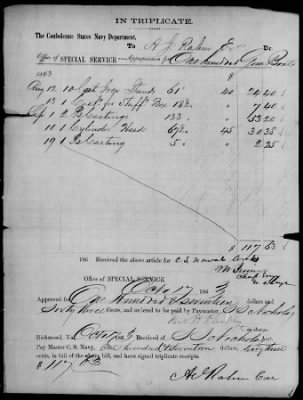 IN TRIPLICATE.
The Confederate States Navy Department,
To A J Rahm Exr Dr.
Office of SPECIAL SERVICE—Appropriation for One hundred Gun Boats
1863 $
Aug 12 10 Cast Iron Stands 61 40 24 40
13 1 Castg for Stuffg Box 18½ 7 40
Sep 1 2 Bs Castings 133 53 20
10 1 Cylinder Head 67½ 45 30 38
19 1 Bs Casting 5 2 25
$ 117 63
186 Received the above article for C.S. Naval
Chief Eng
in charge
Office of SPECIAL SERVICE
Octo 17 1863
Approved for One hundred & seventeen dollars and
Sixty three cents, and ordered to be paid by Paymaster
in charge.
Richmond, Va. 1863 Received of
Pay Master C. S. Navy, One hundred & seventeen dollars, sixty three
cents, in full of the above bill, and have signed triplicate receipts.
$ 117 63
A J Rahm Exr